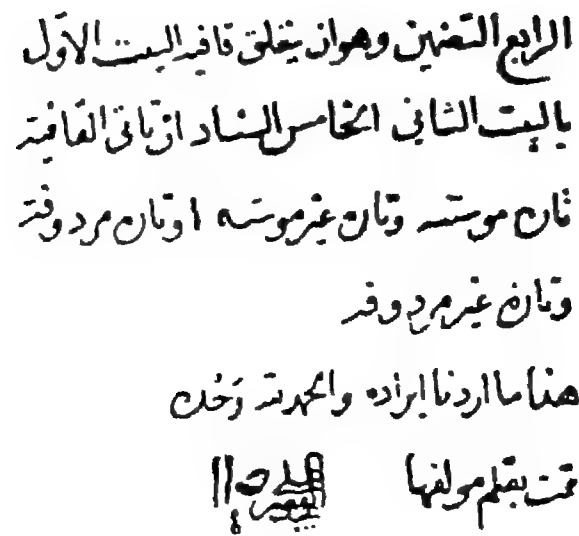 الرابع التضمين وهو ان يتعلق قافيه البيت الاول
بالبيت الثاني الخامس السناد ان تاتي القافية
تارة موسسه وتارة غير موسسه او تارة مردوفة
وتارة غير مردوفه
هذا ما اردنا ايراده والحمد لله وحده
تمت بقلم مولفها